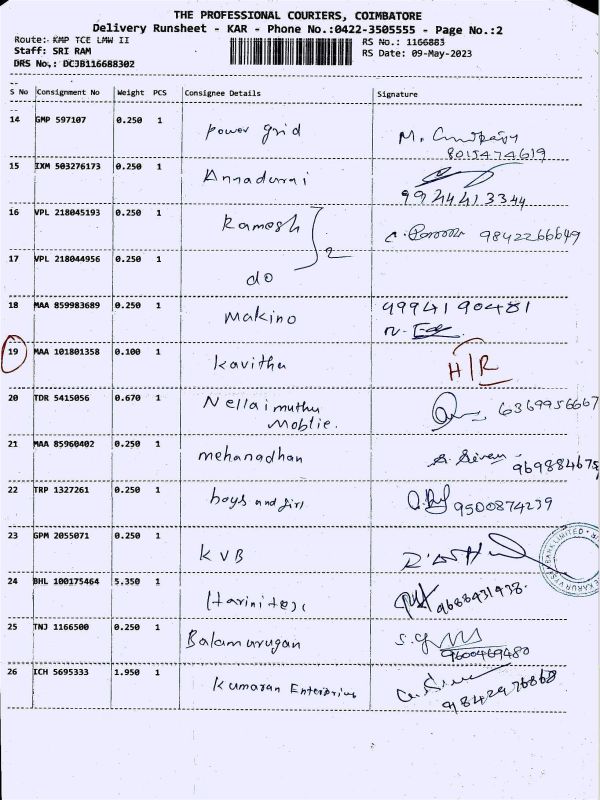 THE PROFESSIONAL COURIERS, COIMBATORE
Delivery Runsheet - KAR - Phone No.:0422-3505555 - Page No.:2
Route:- KMP TCE LMW II RS No.: 1166883
Staff: SRI RAM RS Date: 09-May-2023
DRS No.: DCJB116688302
S No Consignment No Weight PCS Consignee Details Signature
14 GMP 597107 0.250 1 power grid M.
8015474619
15 IXM 503276173 0.250 1 Annadurai
9924413344
16 VPL 218045193 0.250 1 Ramesh 2 9842266649
17 VPL 218044956 0.250 1 do
18 MAA 859983689 0.250 1 Makino 9994190481
19 MAA 101801358 0.100 1 Kavitha H/R
20 TDR 5415056 0.670 1 Nellaimuthu 6369956667
Moblie.
21 MAA 85960402 0.250 1 mehanadhan 969884675
22 TRP 1327261 0.250 1 boys and girl 9500874239
23 GPM 2055071 0.250 1 KVB
24 BHL 100175464 5.350 1 9688931938.
25 TNJ 1166500 0.250 1 Balamurugan
9600469480
26 ICH 5695333 1.950 1 Kumaran Enterprius
9842976868